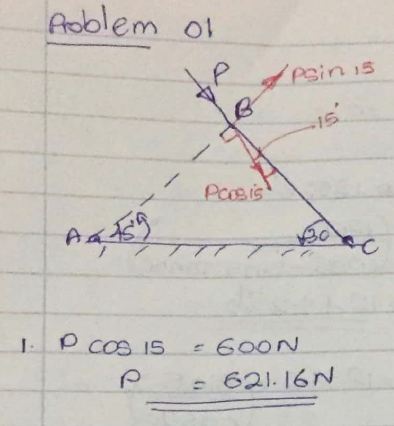 Problem 01
P
P sin 15
B
15°
P cos 15
A
45°
30
C
1. P cos 15 = 600N
P = 621.16N